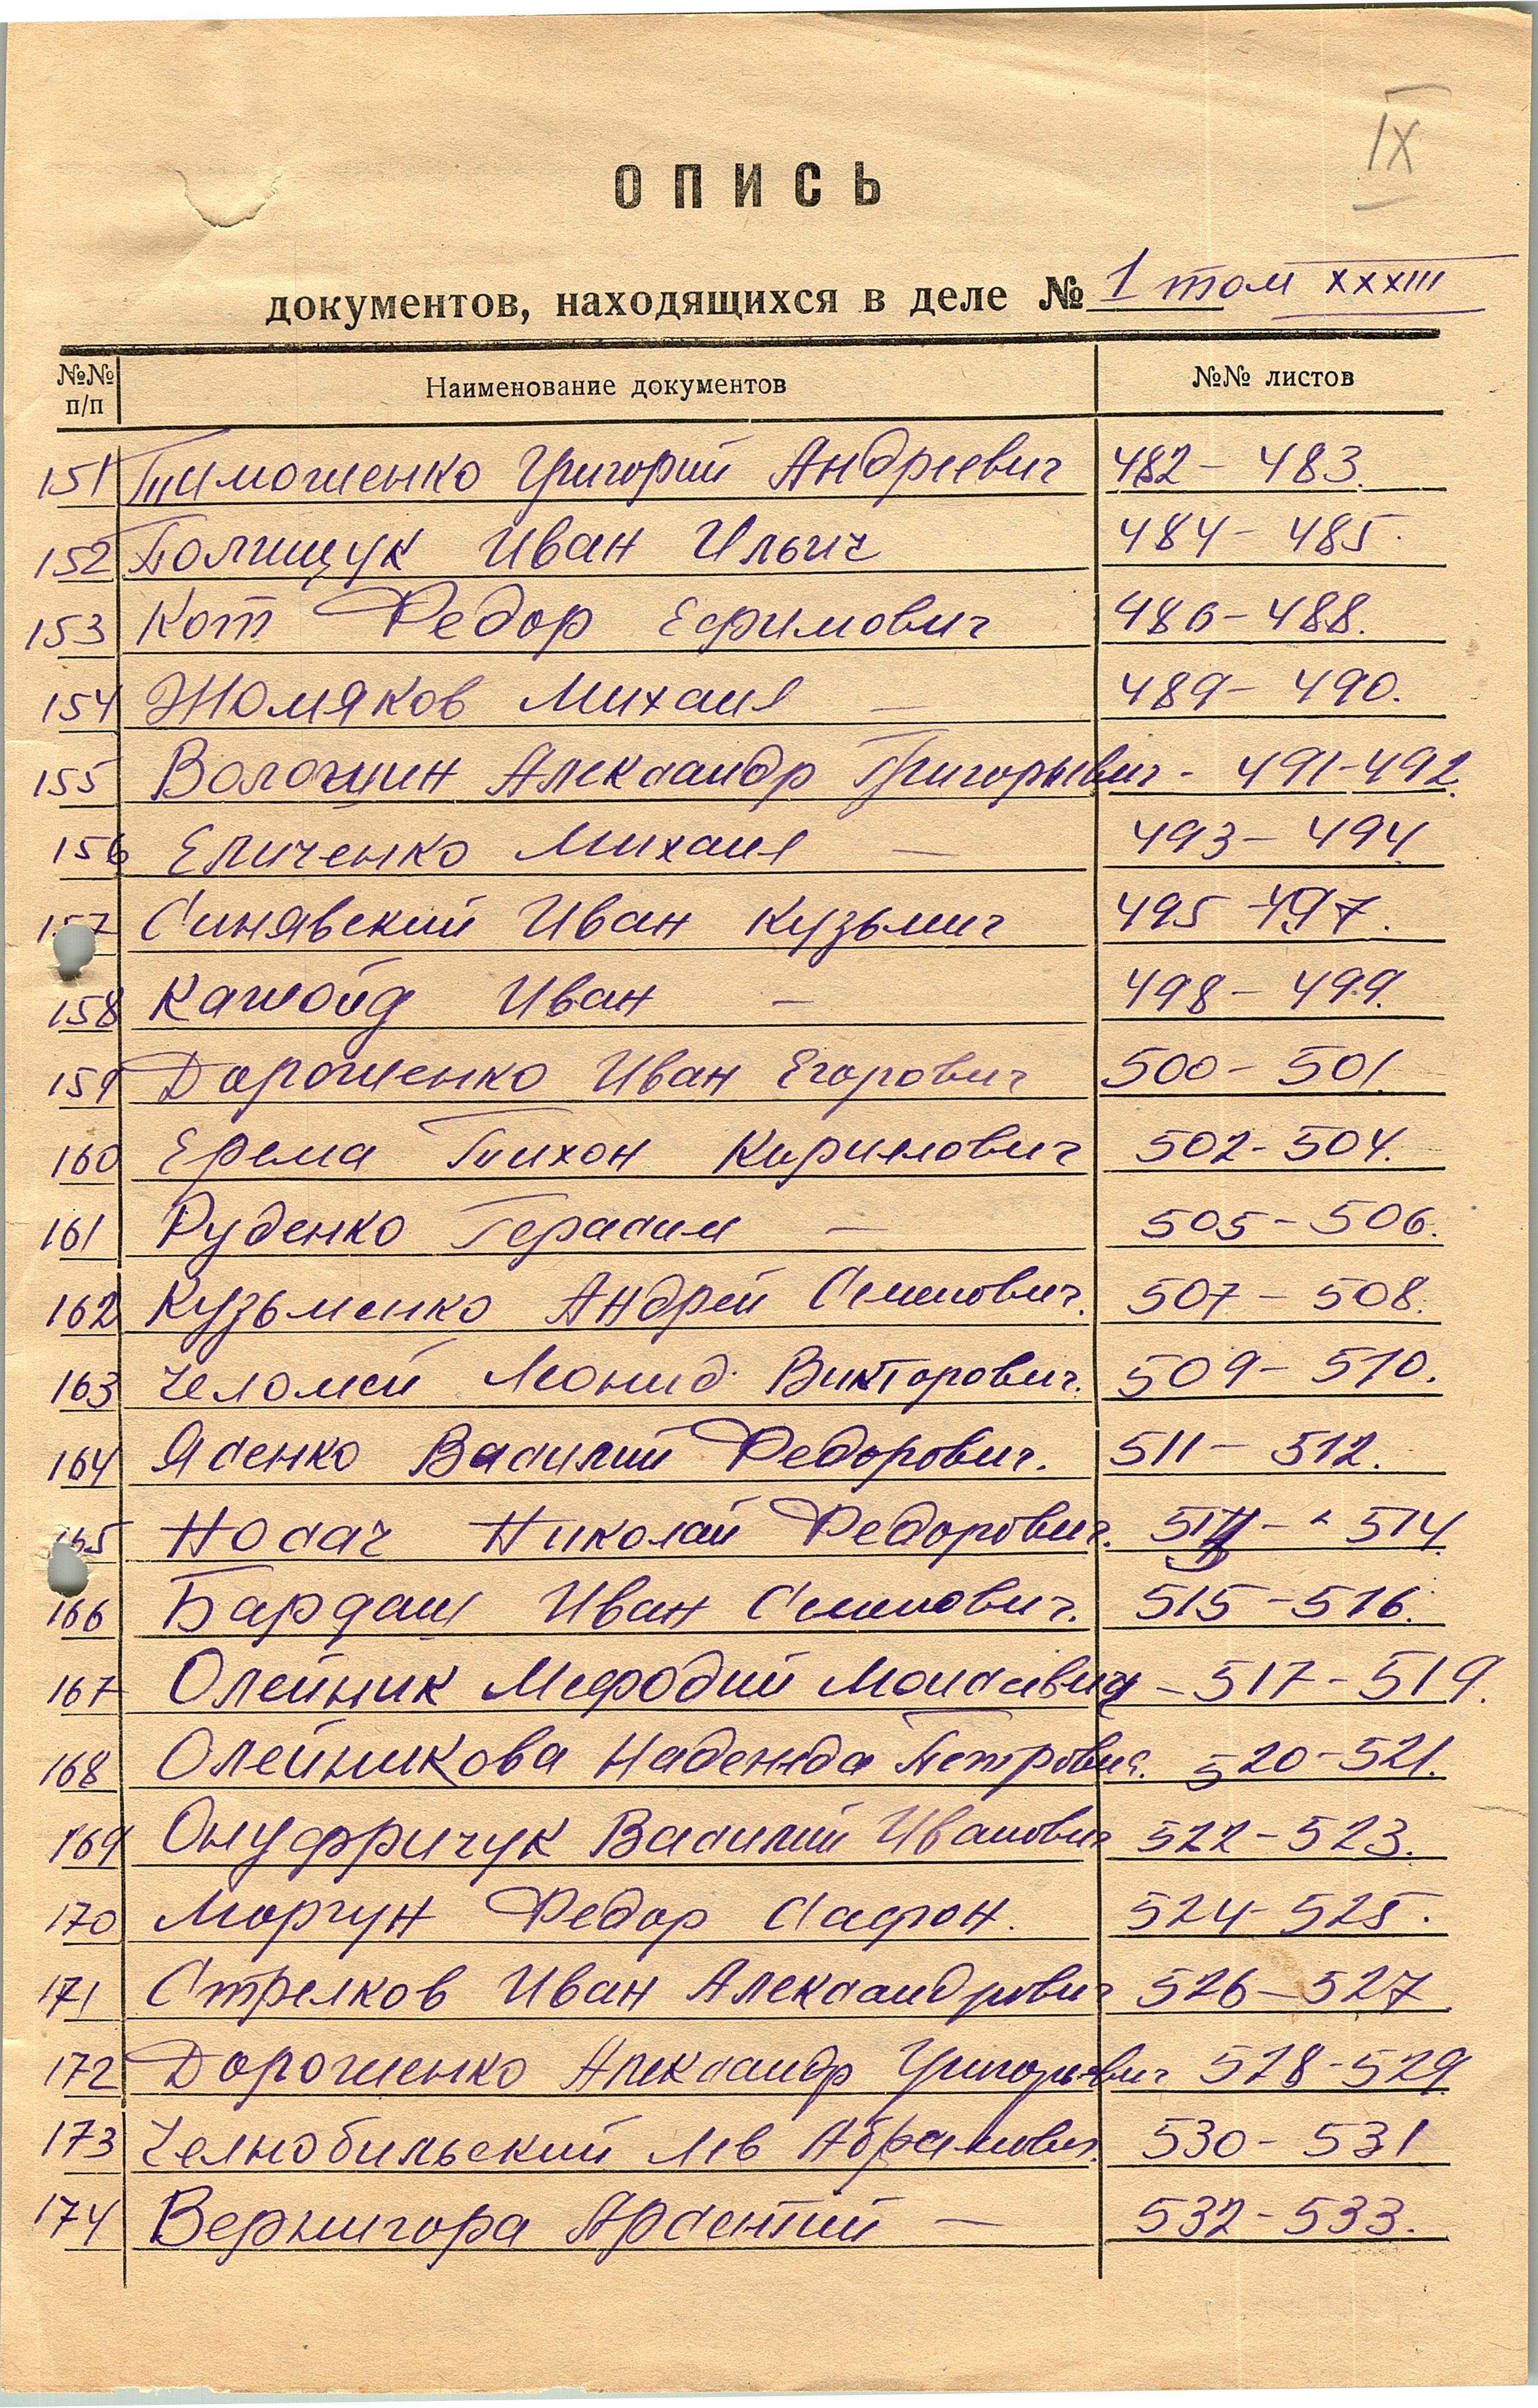 IX
ОПИСЬ
документов, находящихся в деле № 1 том XXXIII
№№ п/п Наименование документов №№ листов
151 Тимошенко Григорий Андреевич 482 - 483.
152 Полищук Иван Ильич 484 - 485.
153 Кот Федор Ефимович 486 - 488.
154 Хомяков Михаил — 489 - 490.
155 Волошин Александр Григорьевич - 491-492.
156 Еличенко Михаил — 493 - 494
157 Синявский Иван Кузьмич 495 - 497.
158 Иван — 498 - 499.
159 Дорошенко Иван Егорович 500 - 501.
160 Ерема Тихон Кирилович 502 - 504.
161 Руденко Герасим — 505 - 506.
162 Кузьменко Андрей Семенович. 507 - 508.
163 Челомей Леонид Викторович. 509 - 510.
164 Ясенко Василий Федорович. 511 - 512.
165 Носач Николай Федорович. - 514.
166 Бардаш Иван Семенович. 515 - 516.
167 Олейник Мефодий Моисеевич - 517 - 519.
168 Олейникова Надежда Петровна. 520 - 521.
169 Онуфричук Василий Иванович 522 - 523.
170 Моргун Федор Сафон. 524 - 525.
171 Стрелков Иван Александрович 526 - 527
172 Дорошенко Александр Григорьевич 528 - 529
173 Челнобильский Лев Абрамович. 530 - 531
174 Вернигора Арсентий — 532 - 533.